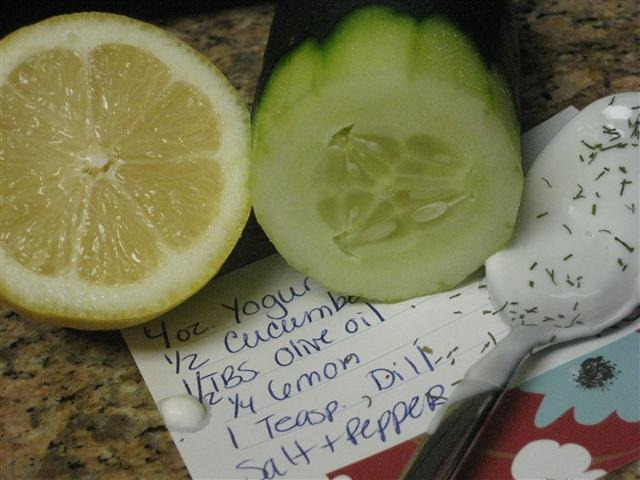 4 oz. Yogur
1/2 cucumbe
1/2 TBS olive oil
1/4 lemon
1 Teasp. Dill
Salt + Pepper